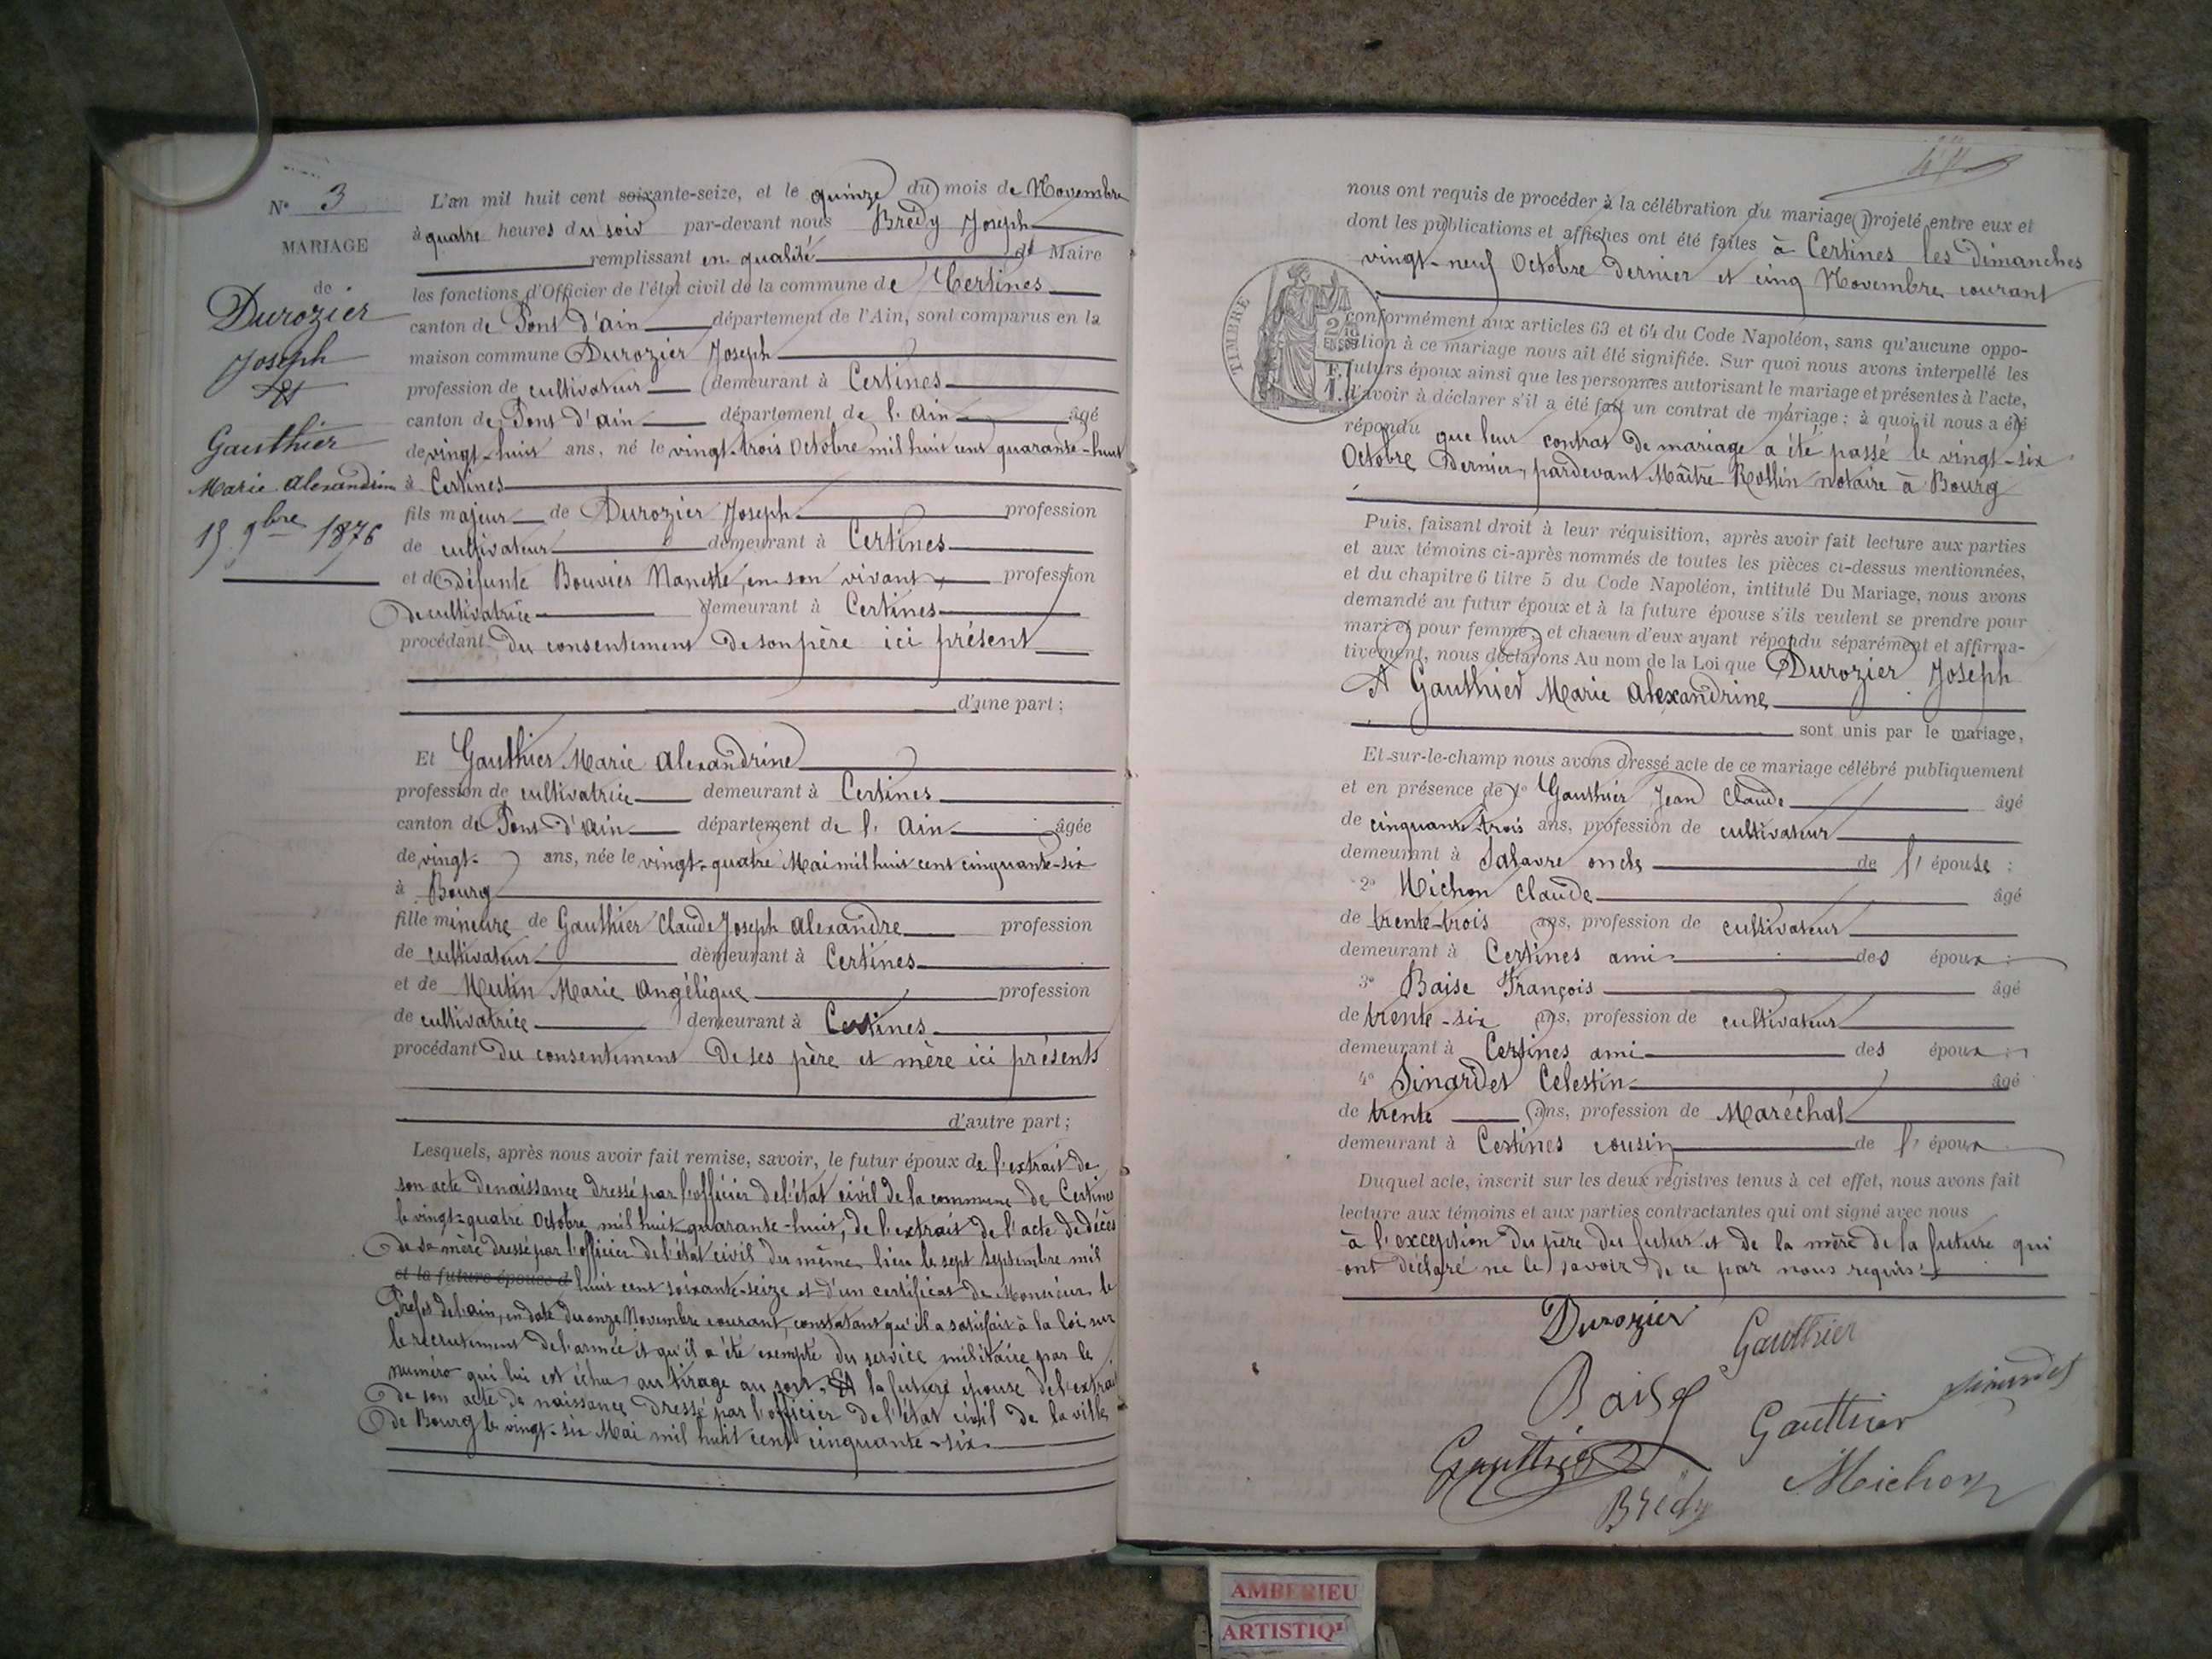 N° 3
MARIAGE
de
Durozier
Joseph
Et
Gauthier
Marie Alexandrine
15 9bre 1876
L'an mil huit cent soixante-seize, et le quinze du mois de Novembre
à quatre heures du soir par-devant nous Brédy Joseph
remplissant en qualité de Maire
les fonctions d'Officier de l'état civil de la commune de Certines
canton de Pont d'ain département de l'Ain, sont comparus en la
maison commune Durozier Joseph
profession de cultivateur demeurant à Certines
canton de Pont d'ain département de l'Ain âgé
de vingt-huit ans, né le vingt-trois Octobre mil huit cent quarante-huit
à Certines
fils majeur de Durozier Joseph profession
de cultivateur demeurant à Certines
et de Défunte Bouvier Nanette, en son vivant, profession
de cultivatrice demeurant à Certines
procédant du consentement de son père ici présent
d'une part ;
Et Gauthier Marie Alexandrine
profession de cultivatrice demeurant à Certines
canton de Pont d'ain département de l'Ain âgée
de vingt ans, née le vingt-quatre Mai mil huit cent cinquante-six
à Bourg
fille mineure de Gauthier Claude Joseph Alexandre profession
de cultivateur demeurant à Certines
et de Mutin Marie Angélique profession
de cultivatrice demeurant à Certines
procédant du consentement de ses père et mère ici présents
d'autre part ;
Lesquels, après nous avoir fait remise, savoir, le futur époux de l'extrait de
son acte de naissance dressé par l'officier de l'état civil de la commune de Certines
le vingt-quatre Octobre mil huit quarante-huit, de l'extrait de l'acte de décès
de sa mère dressé par l'officier de l'état civil du même lieu le sept Septembre mil
et la future épouse d huit cent soixante-seize et d'un certificat de Monsieur le
Préfet de l'ain, en date du onze Novembre courant, constatant qu'il a satisfait à la loi sur
le recrutement de l'armée et qu'il a été exempté du service militaire par le
numéro qui lui est échu au tirage au sort. Et la future épouse de l'extrait
de son acte de naissance dressé par l'officier de l'état civil de la ville
de Bourg le vingt-six Mai mil huit cent cinquante-six.
44
nous ont requis de procéder à la célébration du mariage projeté entre eux et
dont les publications et affiches ont été faites à Certines les dimanches
vingt-neuf Octobre dernier et cinq Novembre courant
TIMBRE
conformément aux articles 63 et 64 du Code Napoléon, sans qu'aucune oppo-
sition à ce mariage nous ait été signifiée. Sur quoi nous avons interpellé les
futurs époux ainsi que les personnes autorisant le mariage et présentes à l'acte,
d'avoir à déclarer s'il a été fait un contrat de mariage ; à quoi il nous a été
répondu que leur contrat de mariage a été passé le vingt-six
Octobre dernier, pardevant Maître Rollin notaire à Bourg
Puis, faisant droit à leur réquisition, après avoir fait lecture aux parties
et aux témoins ci-après nommés de toutes les pièces ci-dessus mentionnées,
et du chapitre 6 titre 5 du Code Napoléon, intitulé Du Mariage, nous avons
demandé au futur époux et à la future épouse s'ils veulent se prendre pour
mari et pour femme, et chacun d'eux ayant répondu séparément et affirma-
tivement, nous déclarons Au nom de la Loi que Durozier Joseph
Et Gauthier Marie Alexandrine
sont unis par le mariage,
Et sur-le-champ nous avons dressé acte de ce mariage célébré publiquement
et en présence de 1° Gauthier Jean Claude âgé
de cinquante-trois ans, profession de cultivateur
demeurant à Salavre oncle de l'épouse ;
2° Michon Claude âgé
de trente-trois ans, profession de cultivateur
demeurant à Certines ami des époux ;
3° Baise François âgé
de trente-six ans, profession de cultivateur
demeurant à Certines ami des époux ;
4° Sinardet Celestin âgé
de trente ans, profession de Maréchal
demeurant à Certines cousin de l'époux
Duquel acte, inscrit sur les deux registres tenus à cet effet, nous avons fait
lecture aux témoins et aux parties contractantes qui ont signé avec nous
à l'exception du père du futur et de la mère de la future qui
ont déclaré ne le savoir de ce par nous requis.
Durozier
Gauthier
Baise
Sinardet
Gauthier
Gauthier
Michon
Brédy
AMBERIEU
ARTISTIQ